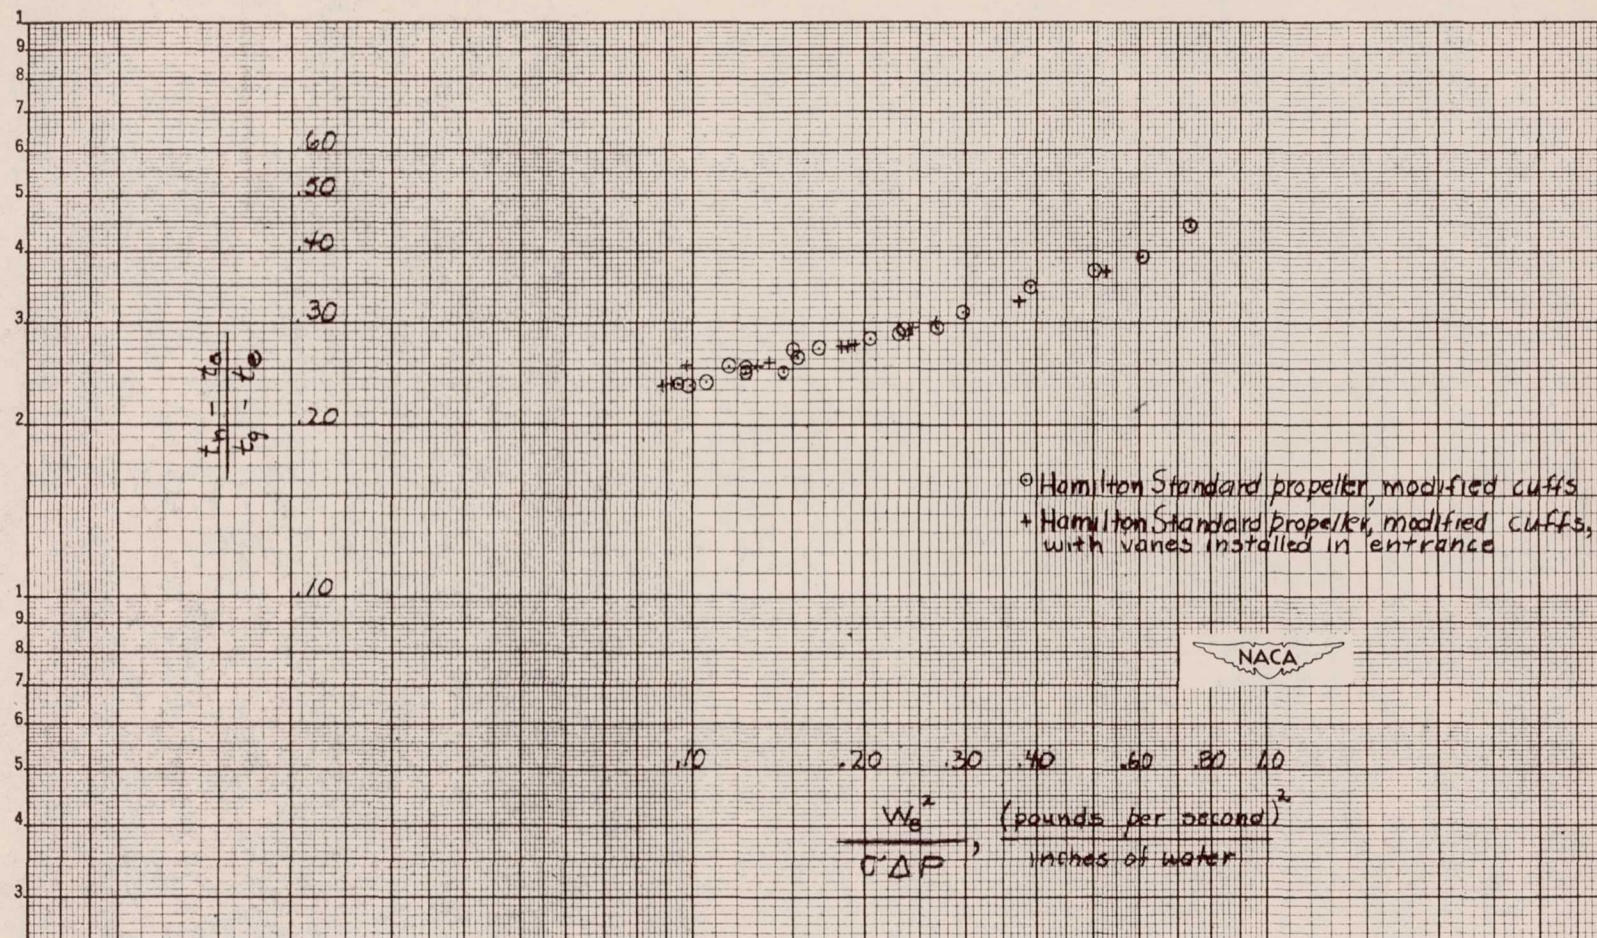 1
9
8
7
6
5
4
3
2
1
9
8
7
6
5
4
3
.60
.50
.40
.30
.20
.10
tₕ - tₐ
t_g - tₑ
⊙ Hamilton Standard propeller, modified cuffs
+ Hamilton Standard propeller, modified cuffs,
with vanes installed in entrance
NACA
.10 .20 .30 .40 .60 .80 1.0
Wₑ² , (pounds per second)²
σΔP inches of water